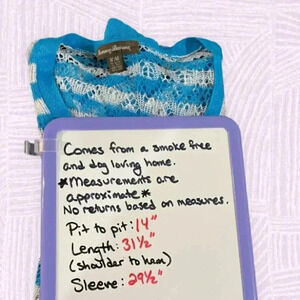 Tommy Bahama
Comes from a smoke free
and dog loving home.
*Measurements are
approximate*
No returns based on measures.
Pit to pit: 14"
Length: 31½"
(shoulder to hem)
Sleeve: 29½"